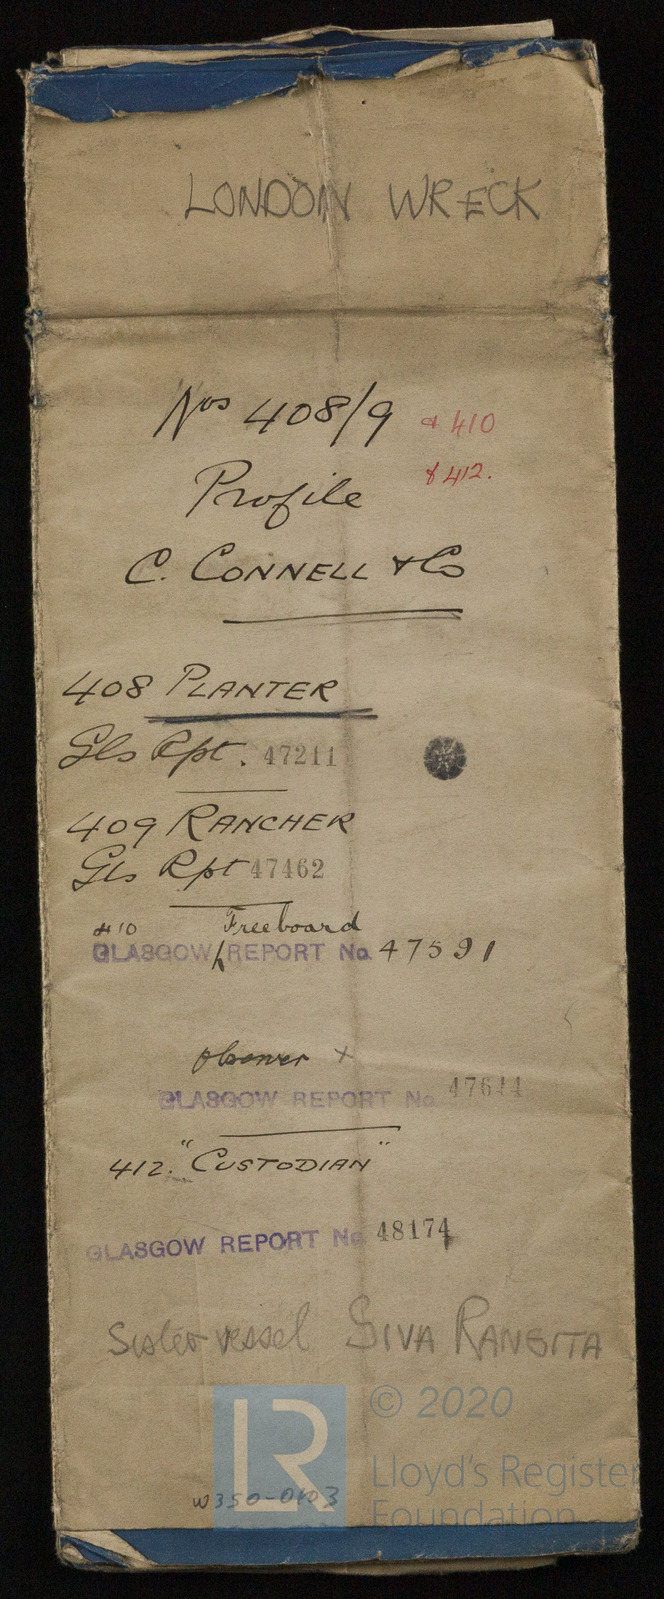 LONDON WRECK
Nos 408/9 & 410
Profile & 412.
C. CONNELL & Co
408 PLANTER
Gls Rpt. 47211
409 RANCHER
Gls Rpt 47462
410 Freeboard
GLASGOW REPORT No. 47591
Observer x
GLASGOW REPORT No. 47644
412. "CUSTODIAN"
GLASGOW REPORT No. 48174
Sister vessel SIVA RANGITA
LR
© 2020
Lloyd's Register
Foundation
W350-0103